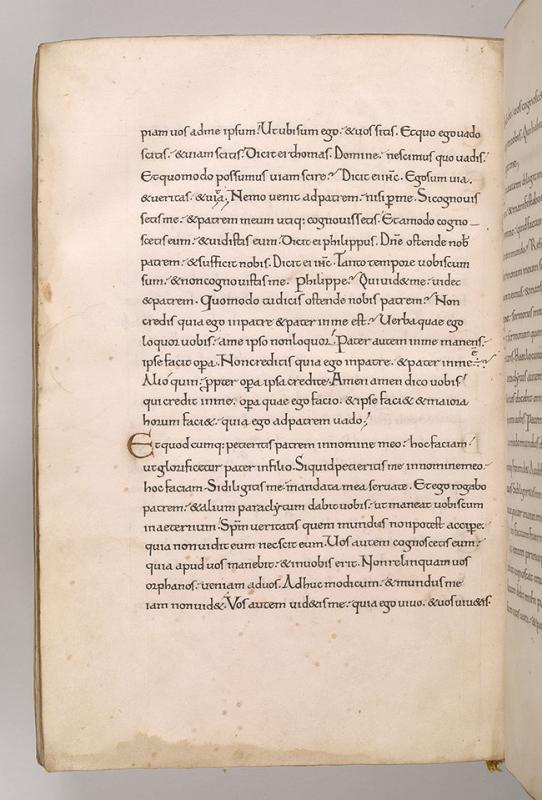 piam uos adme ipsum. Ut ubi sum ego. & uos sitis. Et quo ego uado
scitis. & uiam scitis. Dicit ei thomas. Domine. nescimus quo uadis.
Et quomodo possumus uiam scire? Dicit ei ihc. Ego sum uia.
& ueritas. & uita. Nemo uenit ad patrem. nisi p me. Si cognouis
setis me. & patrem meum utiq; cognouissetis. Et amodo cogno
scetis eum. & uidistis eum. Dicit ei philippus. Dne ostende nob
patrem. & sufficit nobis. Dicit ei ihc. Tanto tempore uobiscum
sum. & non cognouistis me. Philippe? Qui uid& me. uidet
& patrem. Quomodo tu dicis ostende nobis patrem? Non
credis quia ego in patre & pater in me est? Uerba quae ego
loquor uobis. a me ipso non loquor. Pater autem in me manens.
ipse facit opa. Non creditis quia ego in patre. & pater in me
Alio quin. ppter opa ipsa credite. Amen amen dico uobis.
qui credit in me. opa quae ego facio. & ipse faci& & maiora
horum faci&. quia ego ad patrem uado.
Et quodcumq; petieritis patrem in nomine meo. hoc faciam.
ut glorificetur pater in filio. Si quid petieritis me in nomine meo.
hoc faciam. Si diligitis me. mandata mea seruate. Et ego rogabo
patrem. & alium paraclytum dabit uobis. ut maneat uobiscum
in aeternum. Spm ueritatis quem mundus non potest accipe.
quia non uidit eum nec scit eum. Uos autem cognoscetis eum.
quia apud uos manebit. & in uobis erit. Non relinquam uos
orphanos. ueniam ad uos. Adhuc modicum. & mundus me
iam non uid&. Vos autem uid&is me. quia ego uiuo. & uos uiu&is.